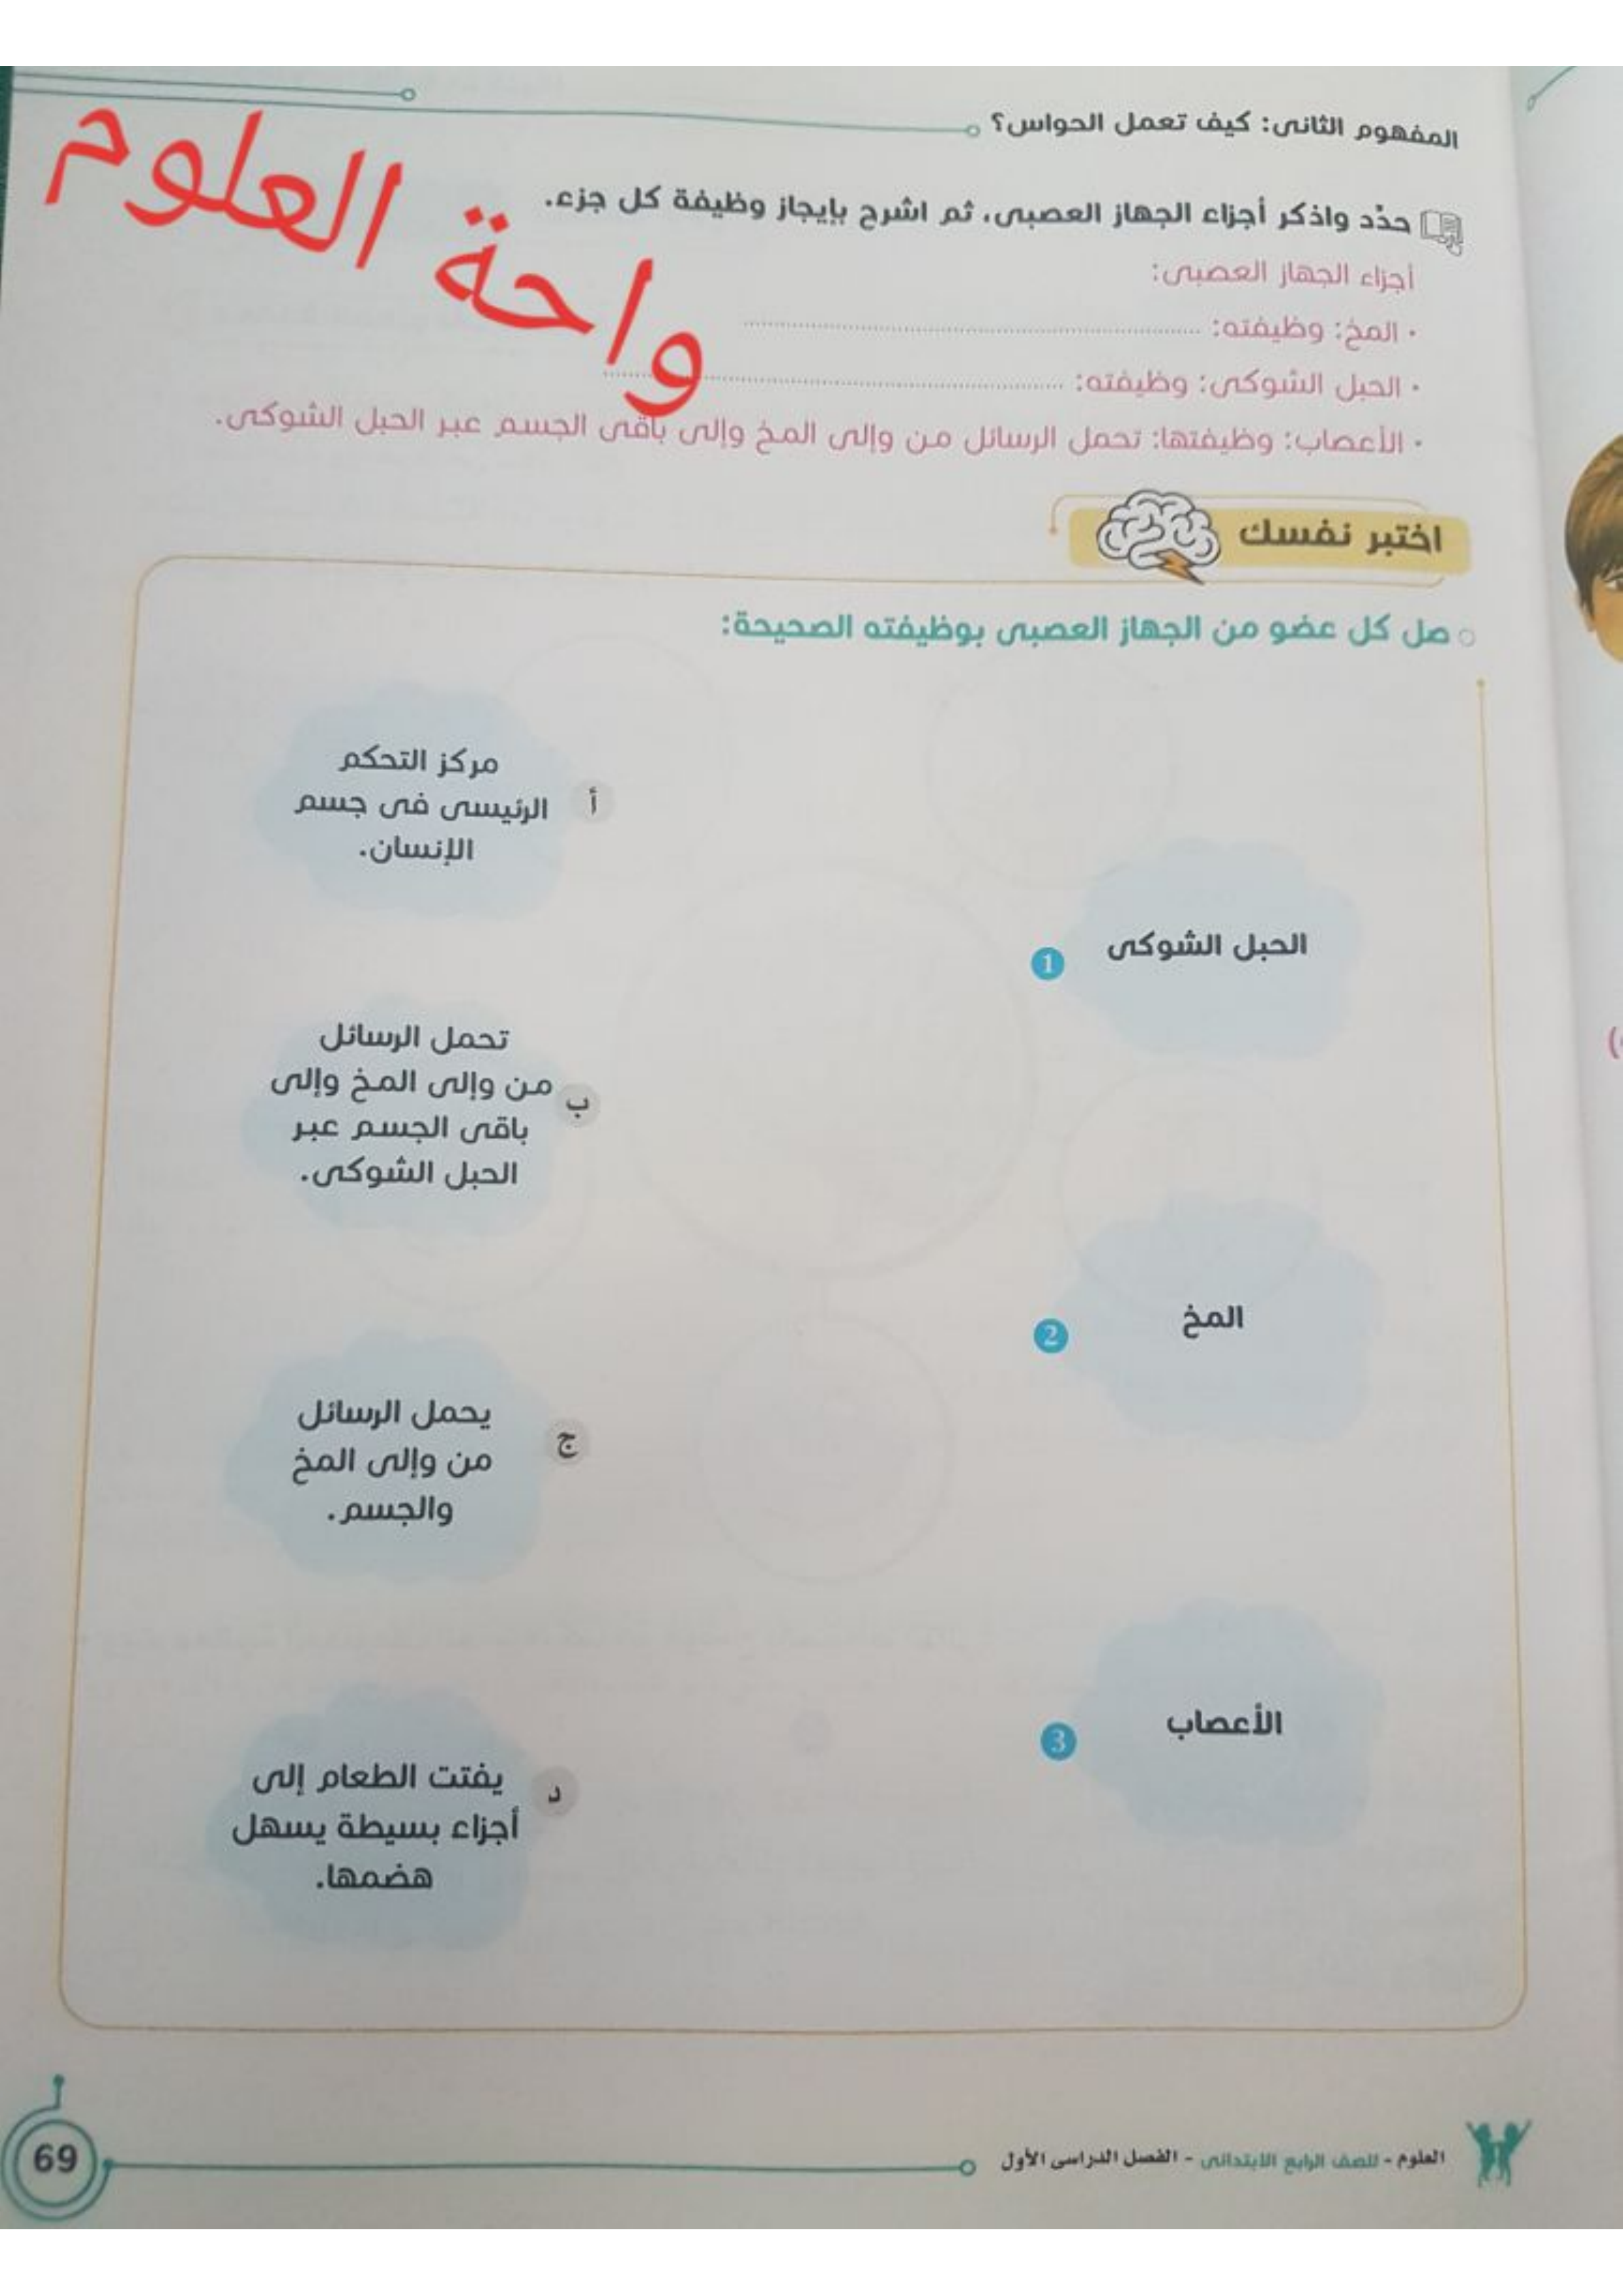 المفهوم الثانى: كيف تعمل الحواس؟
واحة العلوم
حدِّد واذكر أجزاء الجهاز العصبى، ثم اشرح بإيجاز وظيفة كل جزء.
أجزاء الجهاز العصبى:
• المخ: وظيفته: ........................................
• الحبل الشوكى: وظيفته: ........................................
• الأعصاب: وظيفتها: تحمل الرسائل من وإلى المخ وإلى باقى الجسم عبر الحبل الشوكى.
اختبر نفسك
صل كل عضو من الجهاز العصبى بوظيفته الصحيحة:
الحبل الشوكى 1
المخ 2
الأعصاب 3
أ مركز التحكم
الرئيسى فى جسم
الإنسان.
ب تحمل الرسائل
من وإلى المخ وإلى
باقى الجسم عبر
الحبل الشوكى.
ج يحمل الرسائل
من وإلى المخ
والجسم.
د يفتت الطعام إلى
أجزاء بسيطة يسهل
هضمها.
العلوم - للصف الرابع الابتدائى - الفصل الدراسى الأول
69